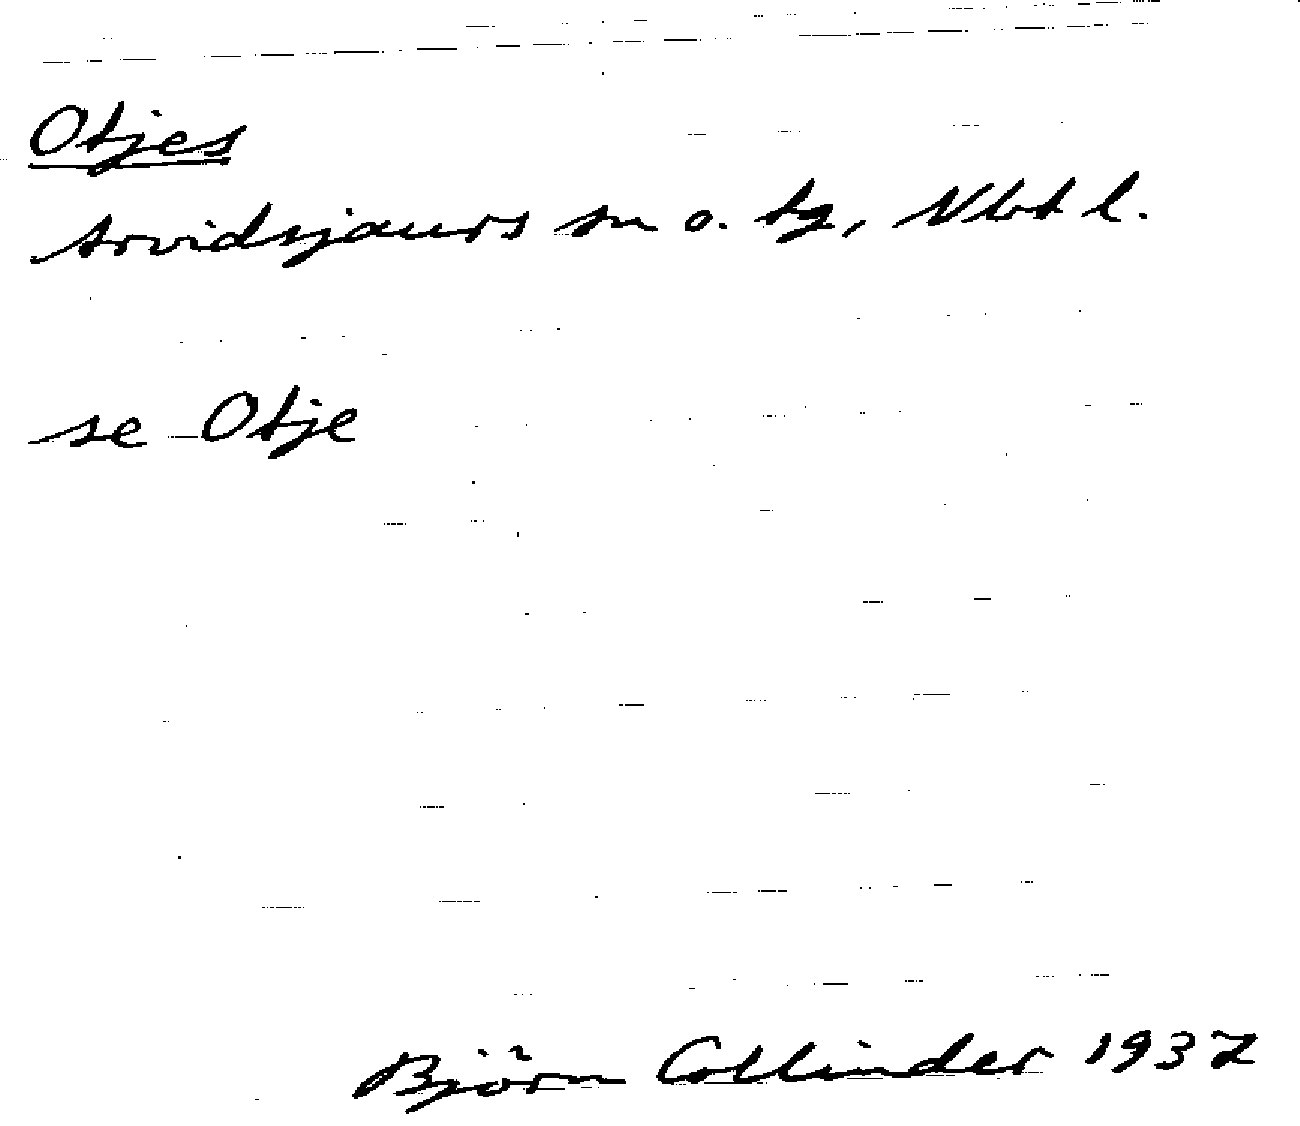 Otjes
Arvidsjaurs sn o. tg, Nbt l.
se Otje
Björn Collinder 1937